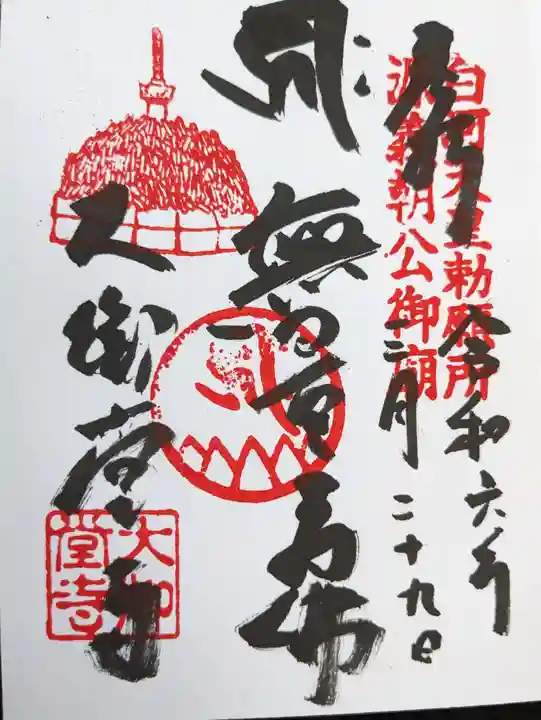 奉拝
白河天皇勅願所
源義朝公御廟
令和六年
二月二十九日
無量寿佛
大御堂寺
大御堂寺